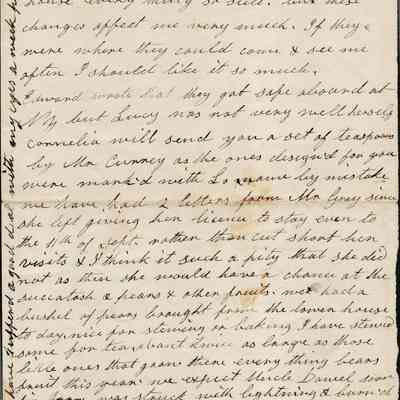 house every thing so still. but these
changes affect me very much. If they
were where they could come & see me
often I should like it so much.
Edward wrote that they got safe aboard at
NY but Lucy was not very well herself
Cornelia will send you a set of teaspoons
by Mr as the ones design'd for you
were mark'd with by mistake
we have had 2 letters from Mr Gray since
she left giving her licence to stay even to
the 11th of Sept. rather than cut short her
visits & I think it such a pity that she did
not as then she would have a chance at the
succatosh & pears & other fruits. we had a
bushel of pears brought from the lower house
to day, nice for stewing or baking I have stewed
some for tea, about twice as large as those
little ones that grow there every thing bears
fruit this year. we expect Uncle Daniel soon
was struck with lightning & burn'd
have suffered a good deal with my eyes a week